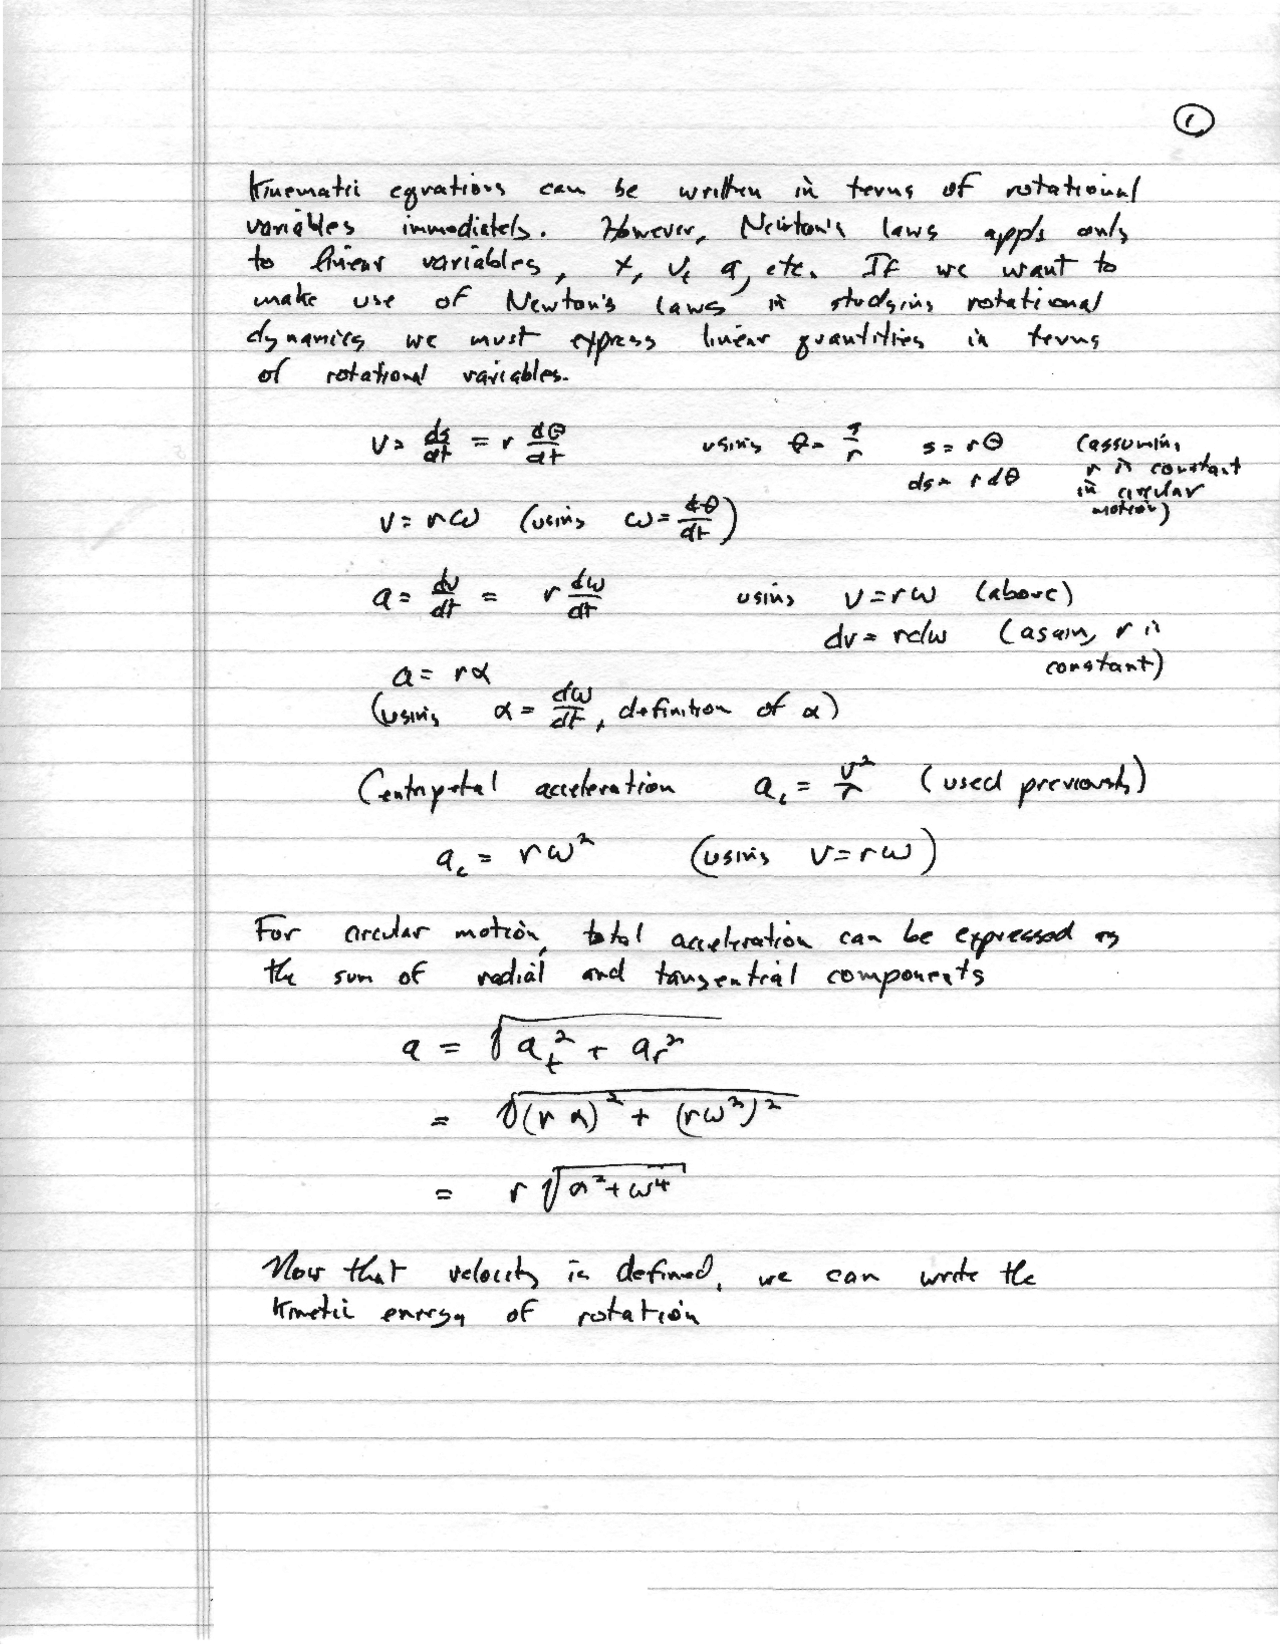 1
Kinematic equations can be written in terms of rotational
variables immediately. However, Newton's laws apply only
to linear variables, x, v, a, etc. If we want to
make use of Newton's laws in studying rotational
dynamics we must express linear quantities in terms
of rotational variables.
v = ds/dt = r dθ/dt using θ = s/r s = rθ (assuming
ds = r dθ r is constant
in circular
motion)
v = rω (using ω = dθ/dt)
a = dv/dt = r dω/dt using v = rω (above)
dv = rdω (again, r is
constant)
a = rα
(using α = dω/dt, definition of α)
Centripetal acceleration a_c = v²/r (used previously)
a_c = rω² (using v = rω)
For circular motion, total acceleration can be expressed as
the sum of radial and tangential components
a = √(a_t² + a_r²)
= √((rα)² + (rω²)²)
= r √(α² + ω⁴)
Now that velocity is defined, we can write the
kinetic energy of rotation